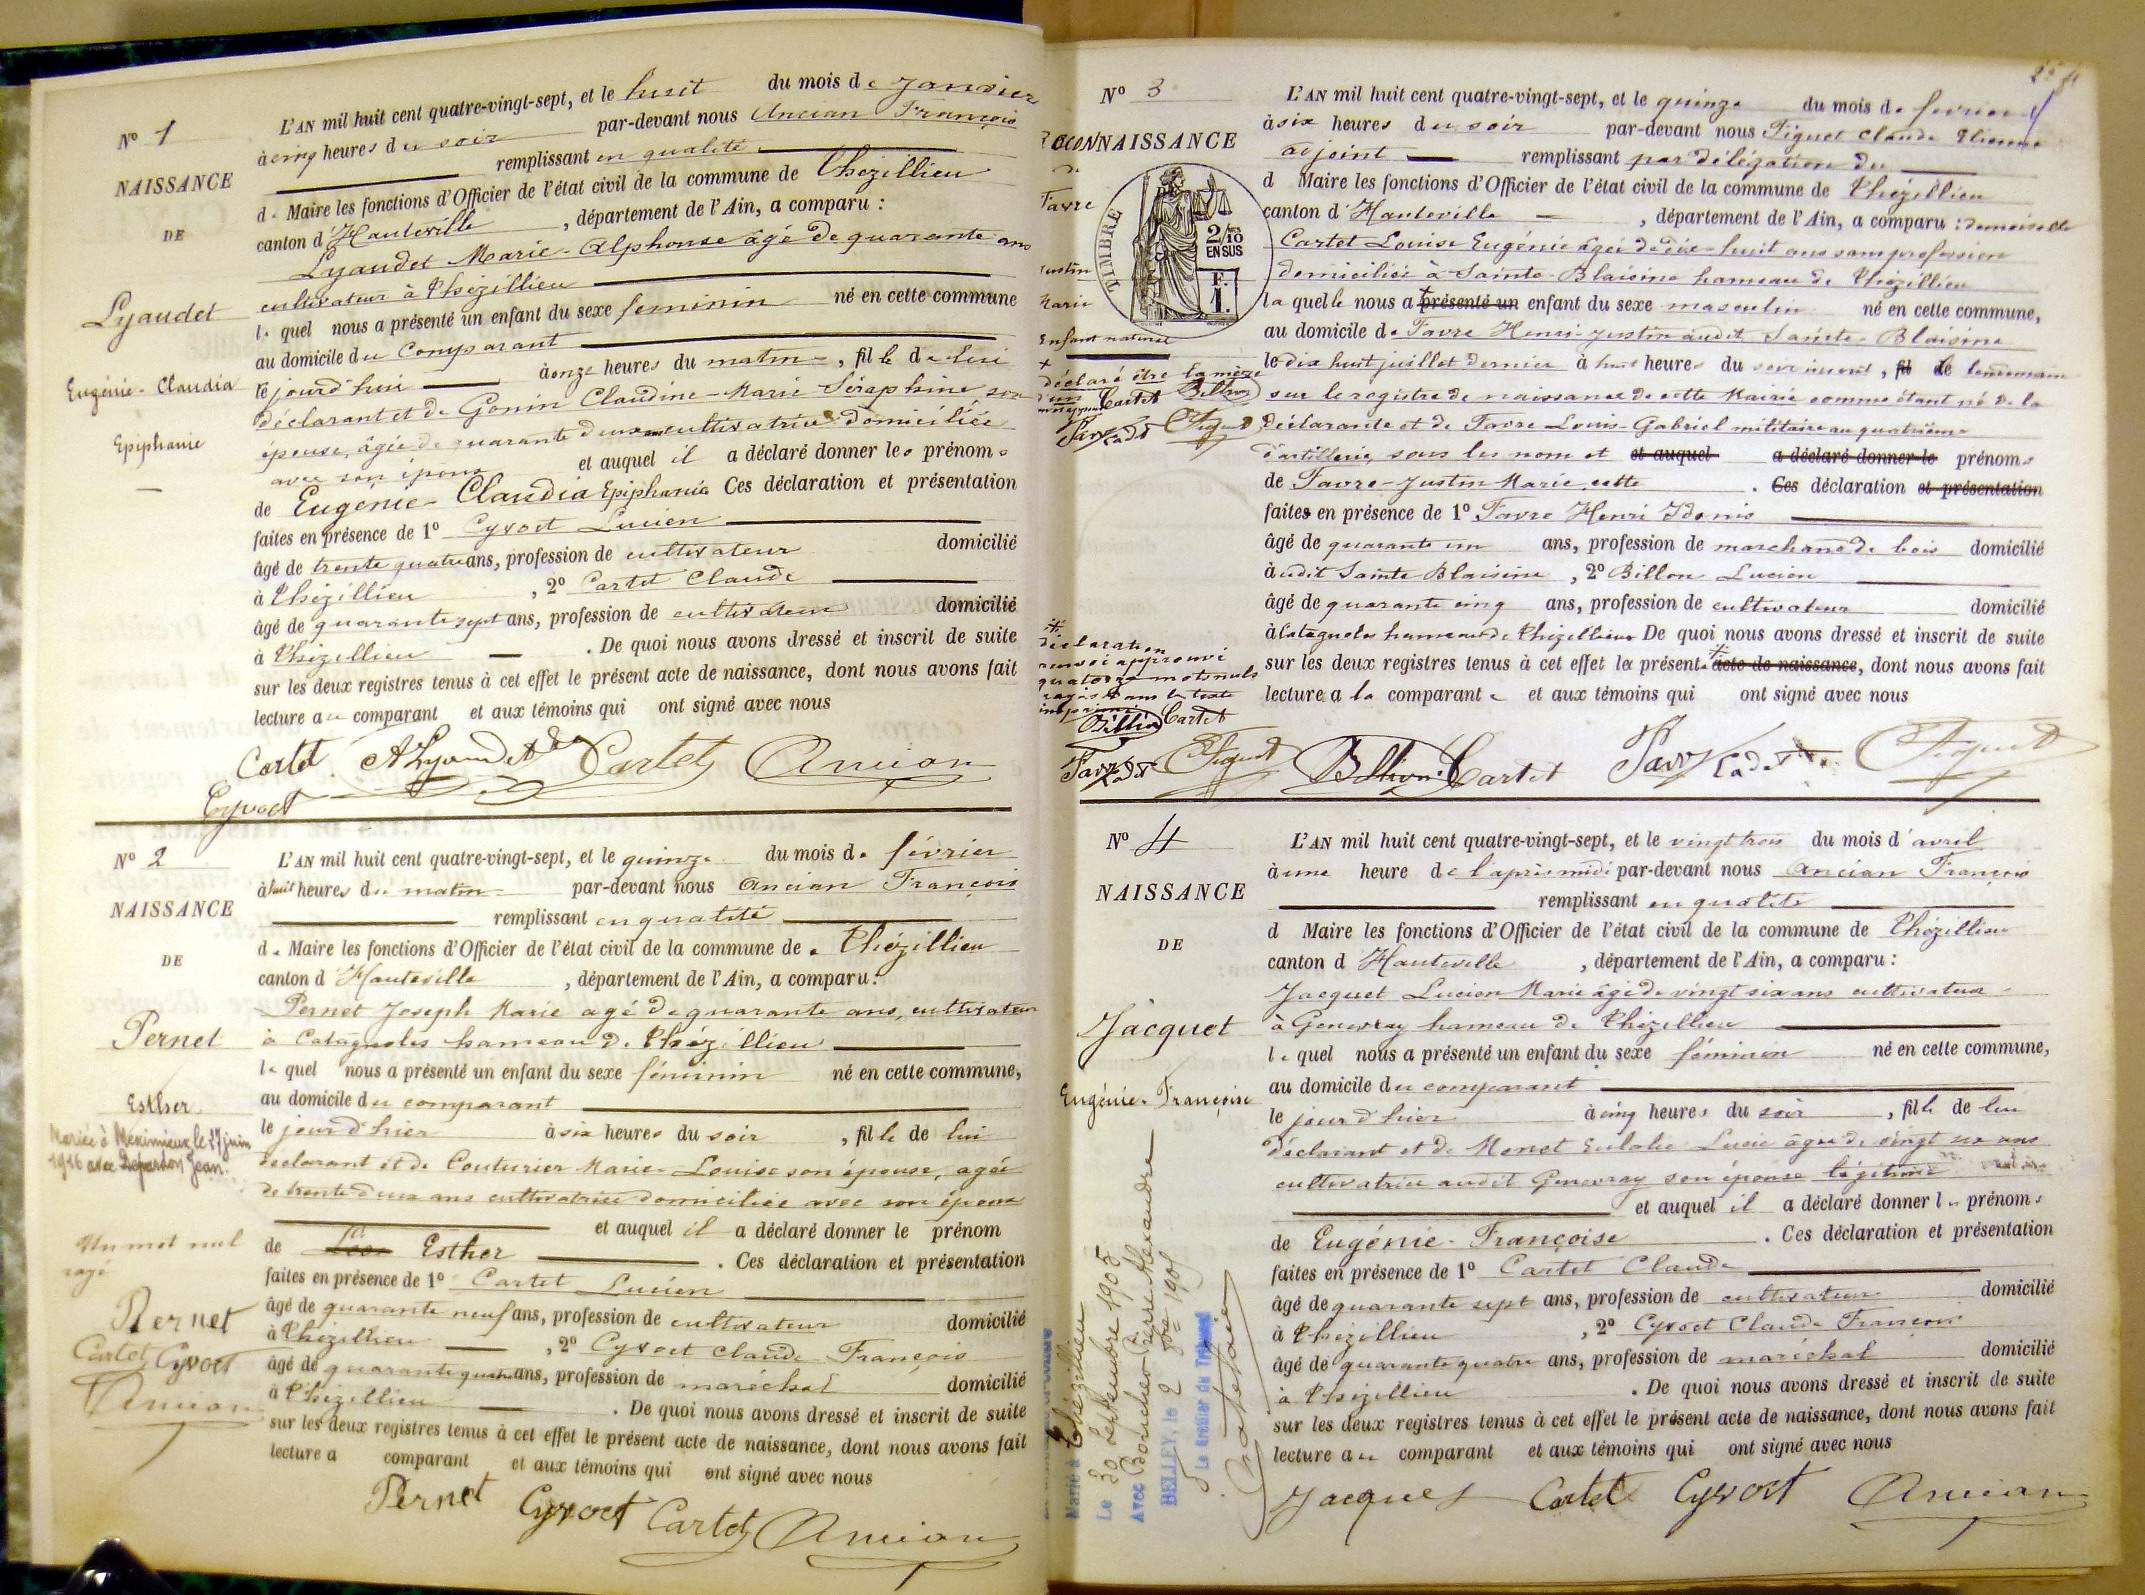 N° 1
NAISSANCE
DE
Lyaudet
Eugénie-Claudia
Epiphanie
L'AN mil huit cent quatre-vingt-sept, et le huit du mois de Janvier
à cinq heures du soir par-devant nous Ancian François
remplissant en qualité
de Maire les fonctions d'Officier de l'état civil de la commune de Thézillieu
canton d'Hauteville, département de l'Ain, a comparu :
Lyaudet Marie-Alphonse âgé de quarante ans
cultivateur à Thézillieu
le quel nous a présenté un enfant du sexe féminin né en cette commune
au domicile du Comparant
le jourd'hui à onze heures du matin, fille de lui
déclarant et de Gonin Claudine-Marie-Séraphine, son
épouse, âgée de quarante deux ans cultivatrice domiciliée
avec son époux et auquel il a déclaré donner les prénoms
de Eugénie-Claudia Epiphanie Ces déclaration et présentation
faites en présence de 1° Cyvoct Lucien
âgé de trente quatre ans, profession de cultivateur domicilié
à Thézillieu, 2° Cartet Claude
âgé de quarante sept ans, profession de cultivateur domicilié
à Thézillieu. De quoi nous avons dressé et inscrit de suite
sur les deux registres tenus à cet effet le présent acte de naissance, dont nous avons fait
lecture au comparant et aux témoins qui ont signé avec nous
Cartet ALyaudet Cartet Ancian
Cyvoct
N° 2
NAISSANCE
DE
Pernet
Esther
Mariée à Meximieux le 27 juin
1916 avec Depardon Jean.
Un mot nul
rayé
Pernet
Cartet Cyvoct
Ancian
L'AN mil huit cent quatre-vingt-sept, et le quinze du mois de février
à huit heures du matin par-devant nous Ancian François
remplissant en qualité
de Maire les fonctions d'Officier de l'état civil de la commune de Thézillieu
canton d'Hauteville, département de l'Ain, a comparu :
Pernet Joseph Marie agé de quarante ans, cultivateur
à Catagnolles hameau de Thézillieu
le quel nous a présenté un enfant du sexe féminin né en cette commune,
au domicile du comparant
le jour d'hier à six heures du soir, fille de lui
déclarant et de Couturier Marie-Louise son épouse, agée
de trente deux ans cultivatrice domiciliée avec son époux
et auquel il a déclaré donner le prénom
de Esther. Ces déclaration et présentation
faites en présence de 1° Cartet Lucien
âgé de quarante neuf ans, profession de cultivateur domicilié
à Thézillieu, 2° Cyvoct Claude François
âgé de quarante quatre ans, profession de maréchal domicilié
à Thézillieu. De quoi nous avons dressé et inscrit de suite
sur les deux registres tenus à cet effet le présent acte de naissance, dont nous avons fait
lecture a comparant et aux témoins qui ont signé avec nous
Pernet Cyvoct Cartet Ancian
N° 3
RECONNAISSANCE
de
Favre
Justin
Marie
Enfant naturel
TIMBRE
2/10
EN SUS
F.
1.
+
déclaré être la mère
d'un
Cartet Billion
Favre Cadet Figuet
L'AN mil huit cent quatre-vingt-sept, et le quinze du mois de février
à six heures du soir par-devant nous Figuet Claude Etienne
adjoint remplissant par délégation du
d Maire les fonctions d'Officier de l'état civil de la commune de Thézillieu
canton d'Hauteville, département de l'Ain, a comparu : demoiselle
Cartet Louise Eugénie âgée de dix-huit ans sans profession
domiciliée à Sainte-Blaisine hameau de Thézillieu
la quelle nous a + présenté un enfant du sexe masculin né en cette commune,
au domicile de Favre Henri-Justin audit Sainte-Blaisine
le dix huit juillet dernier à huit heures du soir inscrit, fil de le lendemain
sur le registre de naissance de cette Mairie comme étant né de la
déclarante et de Favre Louis-Gabriel militaire au quatrième
d'artillerie, sous les nom et et auquel a déclaré donner le prénoms
de Favre-Justin Marie, cette. Ces déclaration et présentation
faites en présence de 1° Favre Henri Idonis
âgé de quarante un ans, profession de marchand de bois domicilié
à audit Sainte Blaisine, 2° Billon Lucien
âgé de quarante cinq ans, profession de cultivateur domicilié
à Catagnoles hameau de Thézillieu De quoi nous avons dressé et inscrit de suite
sur les deux registres tenus à cet effet la présente + acte de naissance, dont nous avons fait
lecture a la comparante et aux témoins qui ont signé avec nous
+
déclaration
renvoi approuvé
quatorze mots nuls
rayés dans le texte
imprimé
Billion Cartet
Favre Cadet Figuet Billion Cartet Favre Cadet Figuet
N° 4
NAISSANCE
DE
Jacquet
Eugénie-Françoise
Marié à Thézillieu
Le 30 septembre 1905
Avec Borcher Pierre Alexandre
BELLEY, le 2 8bre 1905
Le Greffier du Tribunal
L'AN mil huit cent quatre-vingt-sept, et le vingt trois du mois d'avril
à une heure de l'après midi par-devant nous Ancian François
remplissant en qualité
d Maire les fonctions d'Officier de l'état civil de la commune de Thézillieu
canton d Hauteville, département de l'Ain, a comparu :
Jacquet Lucien Marie âgé de vingt six ans cultivateur
à Genevray hameau de Thézillieu
le quel nous a présenté un enfant du sexe féminin né en cette commune,
au domicile du comparant
le jour d'hier à cinq heures du soir, fille de lui
déclarant et de Monet Eulalie Lucie âgée de vingt six ans
cultivatrice audit Genevray son épouse légitime
et auquel il a déclaré donner les prénoms
de Eugénie-Françoise. Ces déclaration et présentation
faites en présence de 1° Cartet Claude
âgé de quarante sept ans, profession de cultivateur domicilié
à Thézillieu, 2° Cyvoct Claude François
âgé de quarante quatre ans, profession de maréchal domicilié
à Thézillieu. De quoi nous avons dressé et inscrit de suite
sur les deux registres tenus à cet effet le présent acte de naissance, dont nous avons fait
lecture au comparant et aux témoins qui ont signé avec nous
Jacquet Cartet Cyvoct Ancian